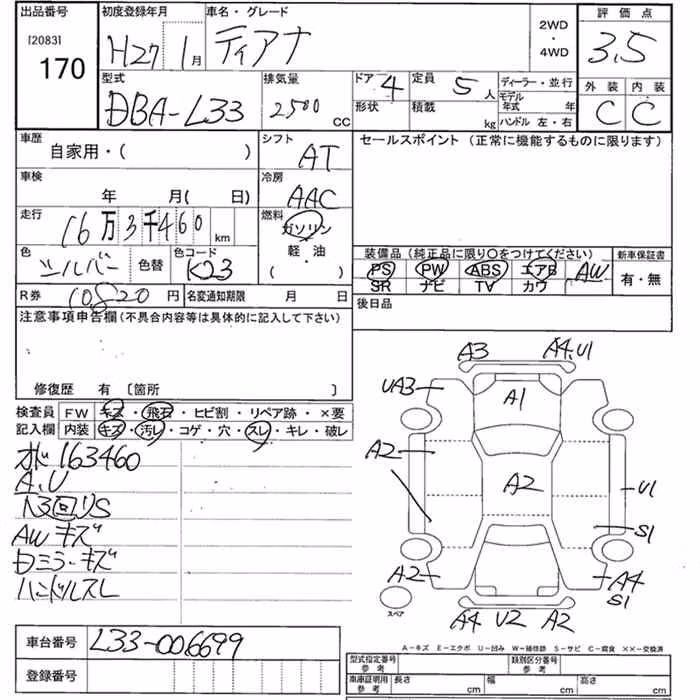 出品番号 初度登録年月 車名・グレード 評価点
[2083] 2WD
170 H27 1月 ティアナ ・ 3.5
4WD
型式 排気量 ドア 4 定員 5人 ディーラー・並行 外装 内装
DBA-L33 2500 CC 形状 積載 kg モデル年式 年 C C
ハンドル 左・右
車歴 シフト セールスポイント (正常に機能するものに限ります)
自家用・( ) AT
車検 冷房
年 月( 日) AAC
走行 燃料
16万3千460 km ガソリン
軽・油
( )
色 色替 色コード 装備品(純正品に限り〇をつけてください) 新車保証書
シルバー K23 PS PW ABS エアB AW 有・無
SR ナビ TV カワ
R券 10820円 名変通知期限 月 日 後日品
注意事項申告欄(不具合内容等は具体的に記入して下さい)
修復歴 有 〔箇所 〕
検査員 FW キズ・飛石・ヒビ割・リペア跡・×要
記入欄 内装 キズ・汚レ・コゲ・穴・スレ・キレ・破レ
163460
A.U
AWキズ
Dミラーキズ
ハンドルスレ
A3 A4.U1
UA3 A1
A2
A2 U1
S1
A2 A4
S1
スペア
A4 U2 A2
車台番号 L33-006699
登録番号
A-キズ E-エクボ U-凹み W-補修跡 S-サビ C-腐食 ××-交換済
型式指定番号 類別区分番号
参考 参考
車庫証明用 長さ 幅 高さ
参考 cm cm cm